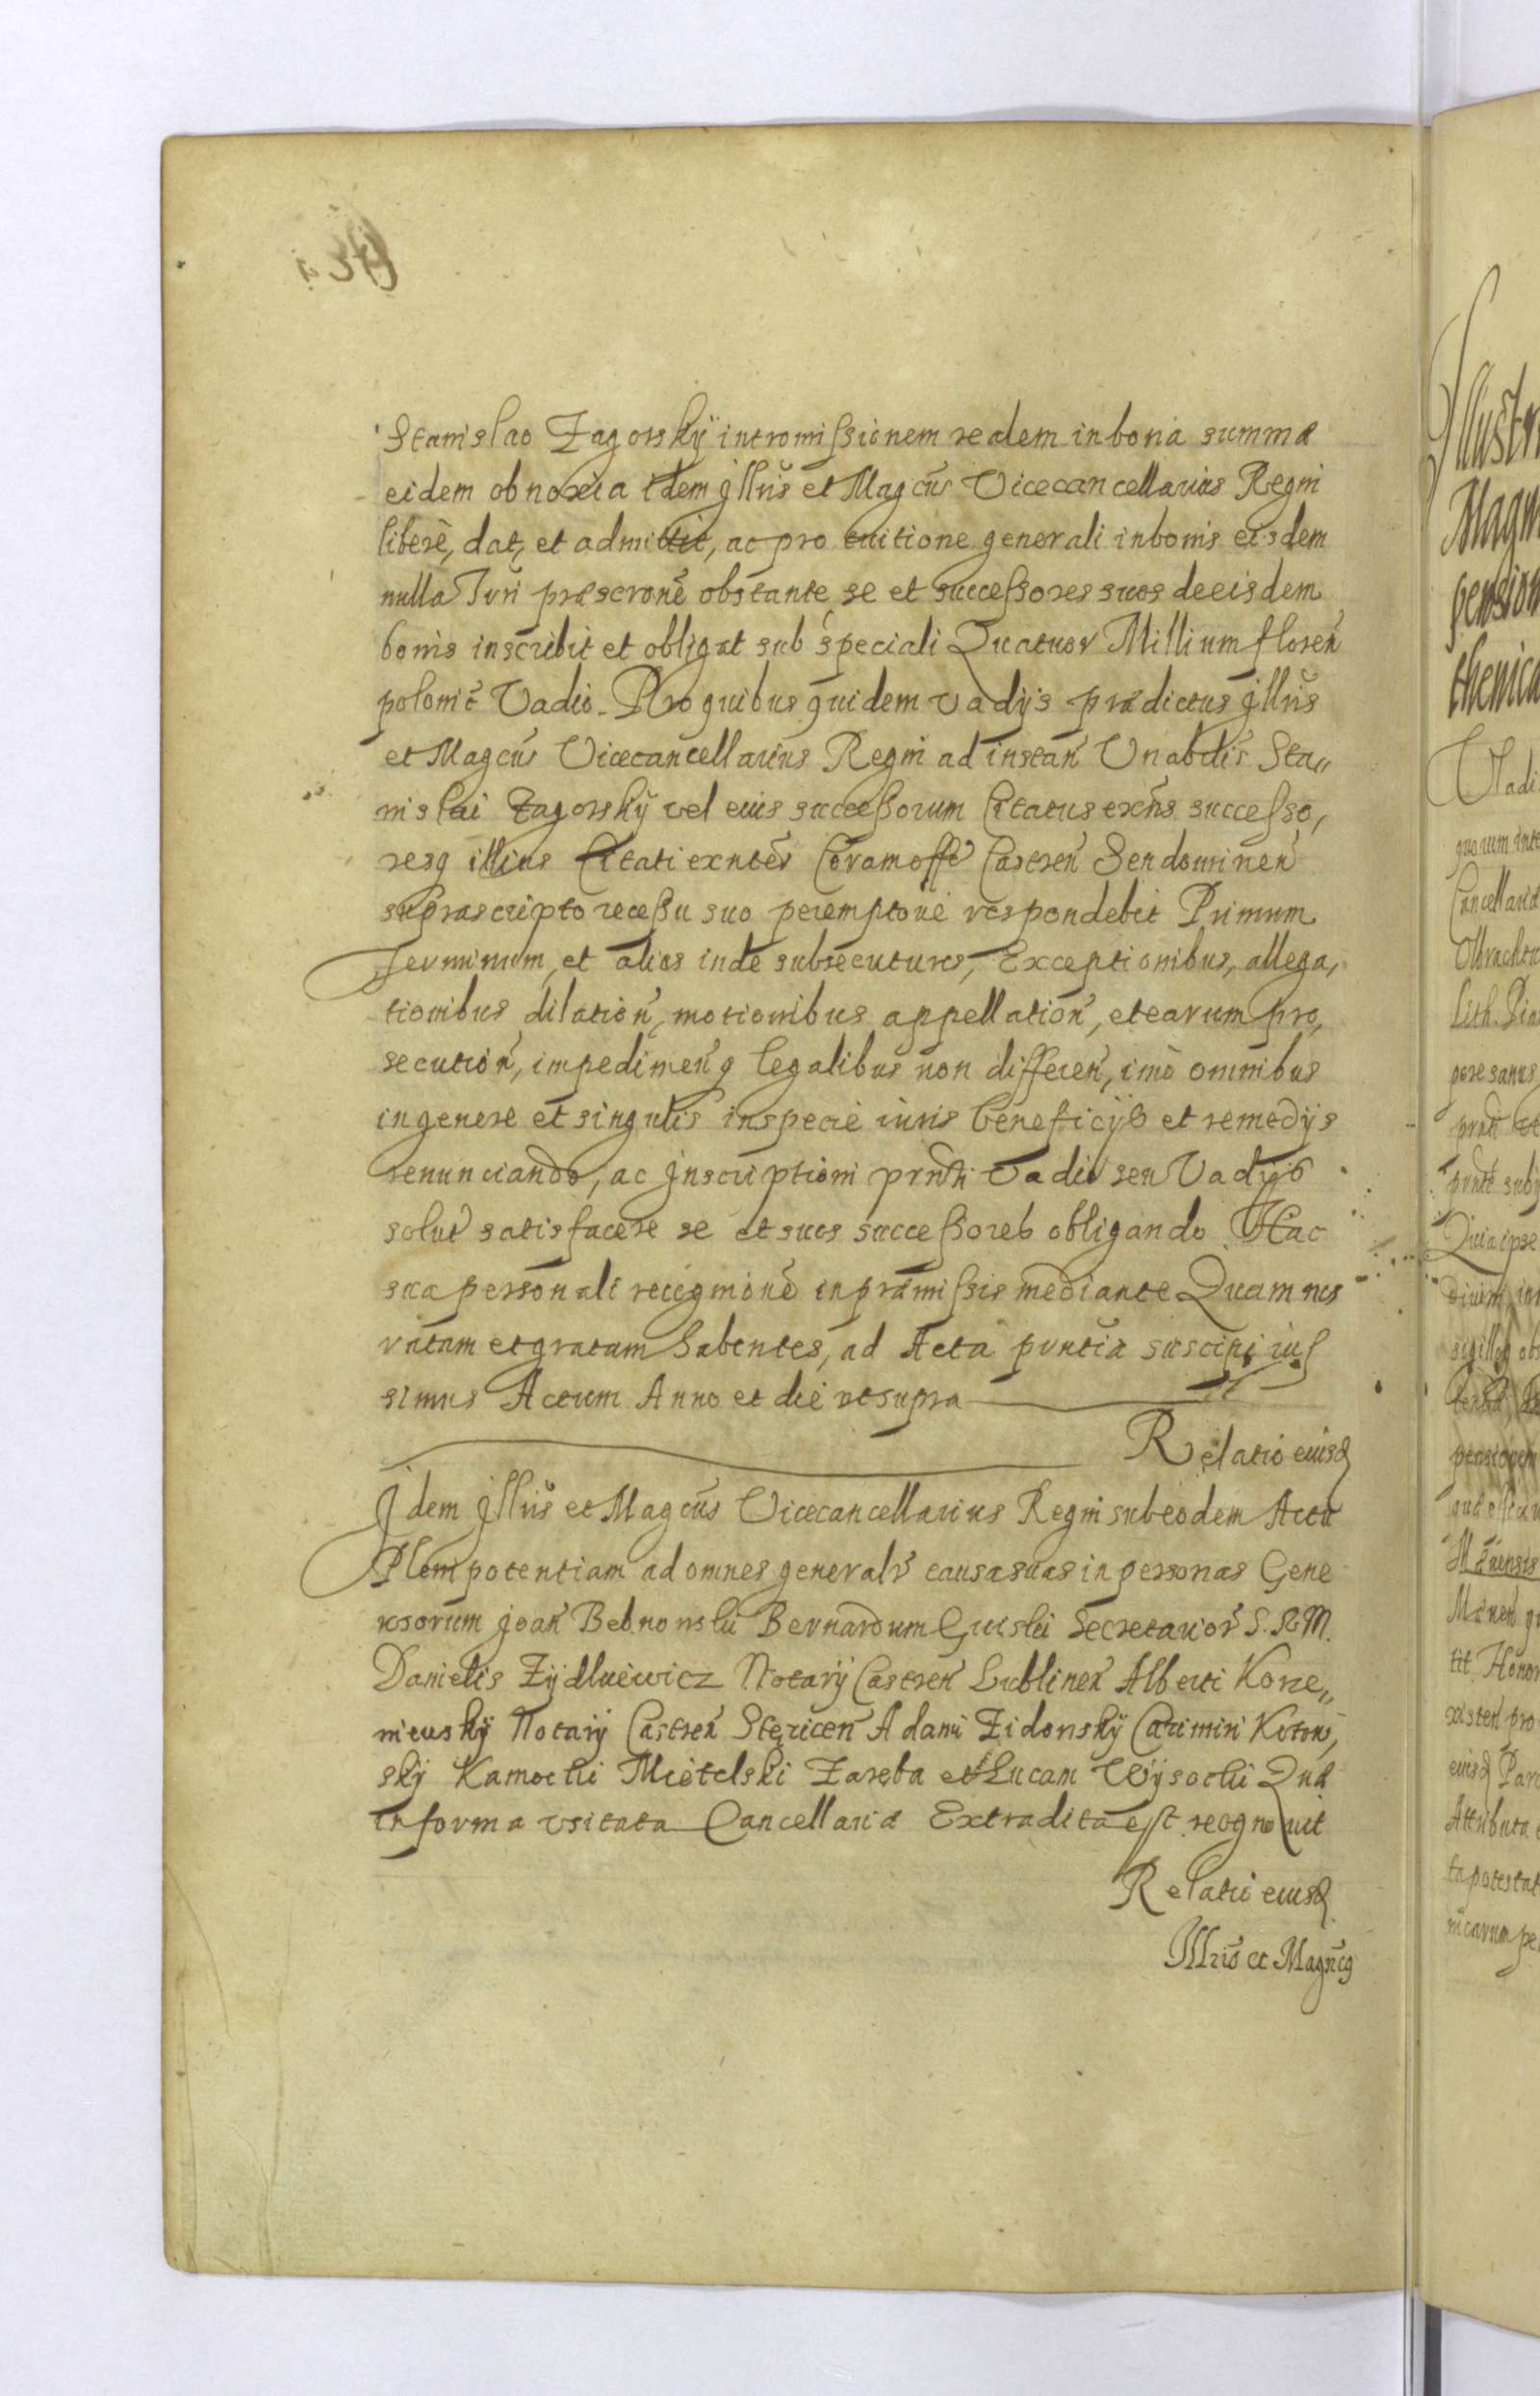 Stanislao Zagorskÿ intromissionem realem in bona summæ
eidem obnoxia idem jllris et Magcūs Vicecancellarius Regni
liberè, dat, et admittit, ac pro tuitione generali in bonis eisdem
nulla Juri præscronē obstante se et successores suos de eisdem
bonis inscribit et obligat sub speciali Quatuor Millium floren̄
polonic̄ Vadio. Pro quibus quidem vadijs prædictus jllris
et Magcūs Vicecancellarius Regni ad instan̄ Vnabilis Sta„
nislai Zagorskÿ vel eius successorum Citatus exn̄s successo,
resq illius Citati exntēs Coram offō Castren̄ Sendomirien̄
suprascripto recessu suo peremptoriè respondebit Primum
Terminum, et alios inde subsecuturos, Exceptionibus, allega,
tionibus dilation̄, motionibus appellation̄, et earum pro,
secution̄, impedimen̄q legalibus non differen̄, imò omnibus
in genere et singulis in specie iuris beneficijs et remedijs
renunciando, ac jnscriptioni prnti Vadio seu Vadijs
solut̄ satisfacere se et suos successores obligando Hac
sua personali recognitionē in præmissis mediante Quam nos
ratam et gratam habentes, ad Acta prntia suscipi ius
simus Actum Anno et die vt supra
Relatio eiusd
Jdem jllris et Magcūs Vicecancellarius Regni sub eodem Actu
Plenipotentiam ad omnes generalr̄ causas suas in personas Gene
rosorum joan̄ Bernardum Secretarior̄ S. R. M.
Danielis Notarÿ Castren̄ Lublinen̄ Alberti Korze„
niewskÿ Notarÿ Castren̄ Stęzicen̄ Adami Zidonskÿ Cazimiri Kotow,
skÿ Kamocki Mietelski Zaręba et Lucam Wÿsocki Quæ
in forma vsitata Cancellariæ Extradita est recognovit
Relatio eiusd
Jllris et Magncq
Illustr
Magn
pension
thenica
Vadi
quorum inte
Cancellaria
Olbracht
Lith.
pore sanus
prnti et
prnte sub
Quia ipse
sigilloq
pensionem
tit. Honor
existen̄ pro
eiusd Par
Attributa
ta potestat